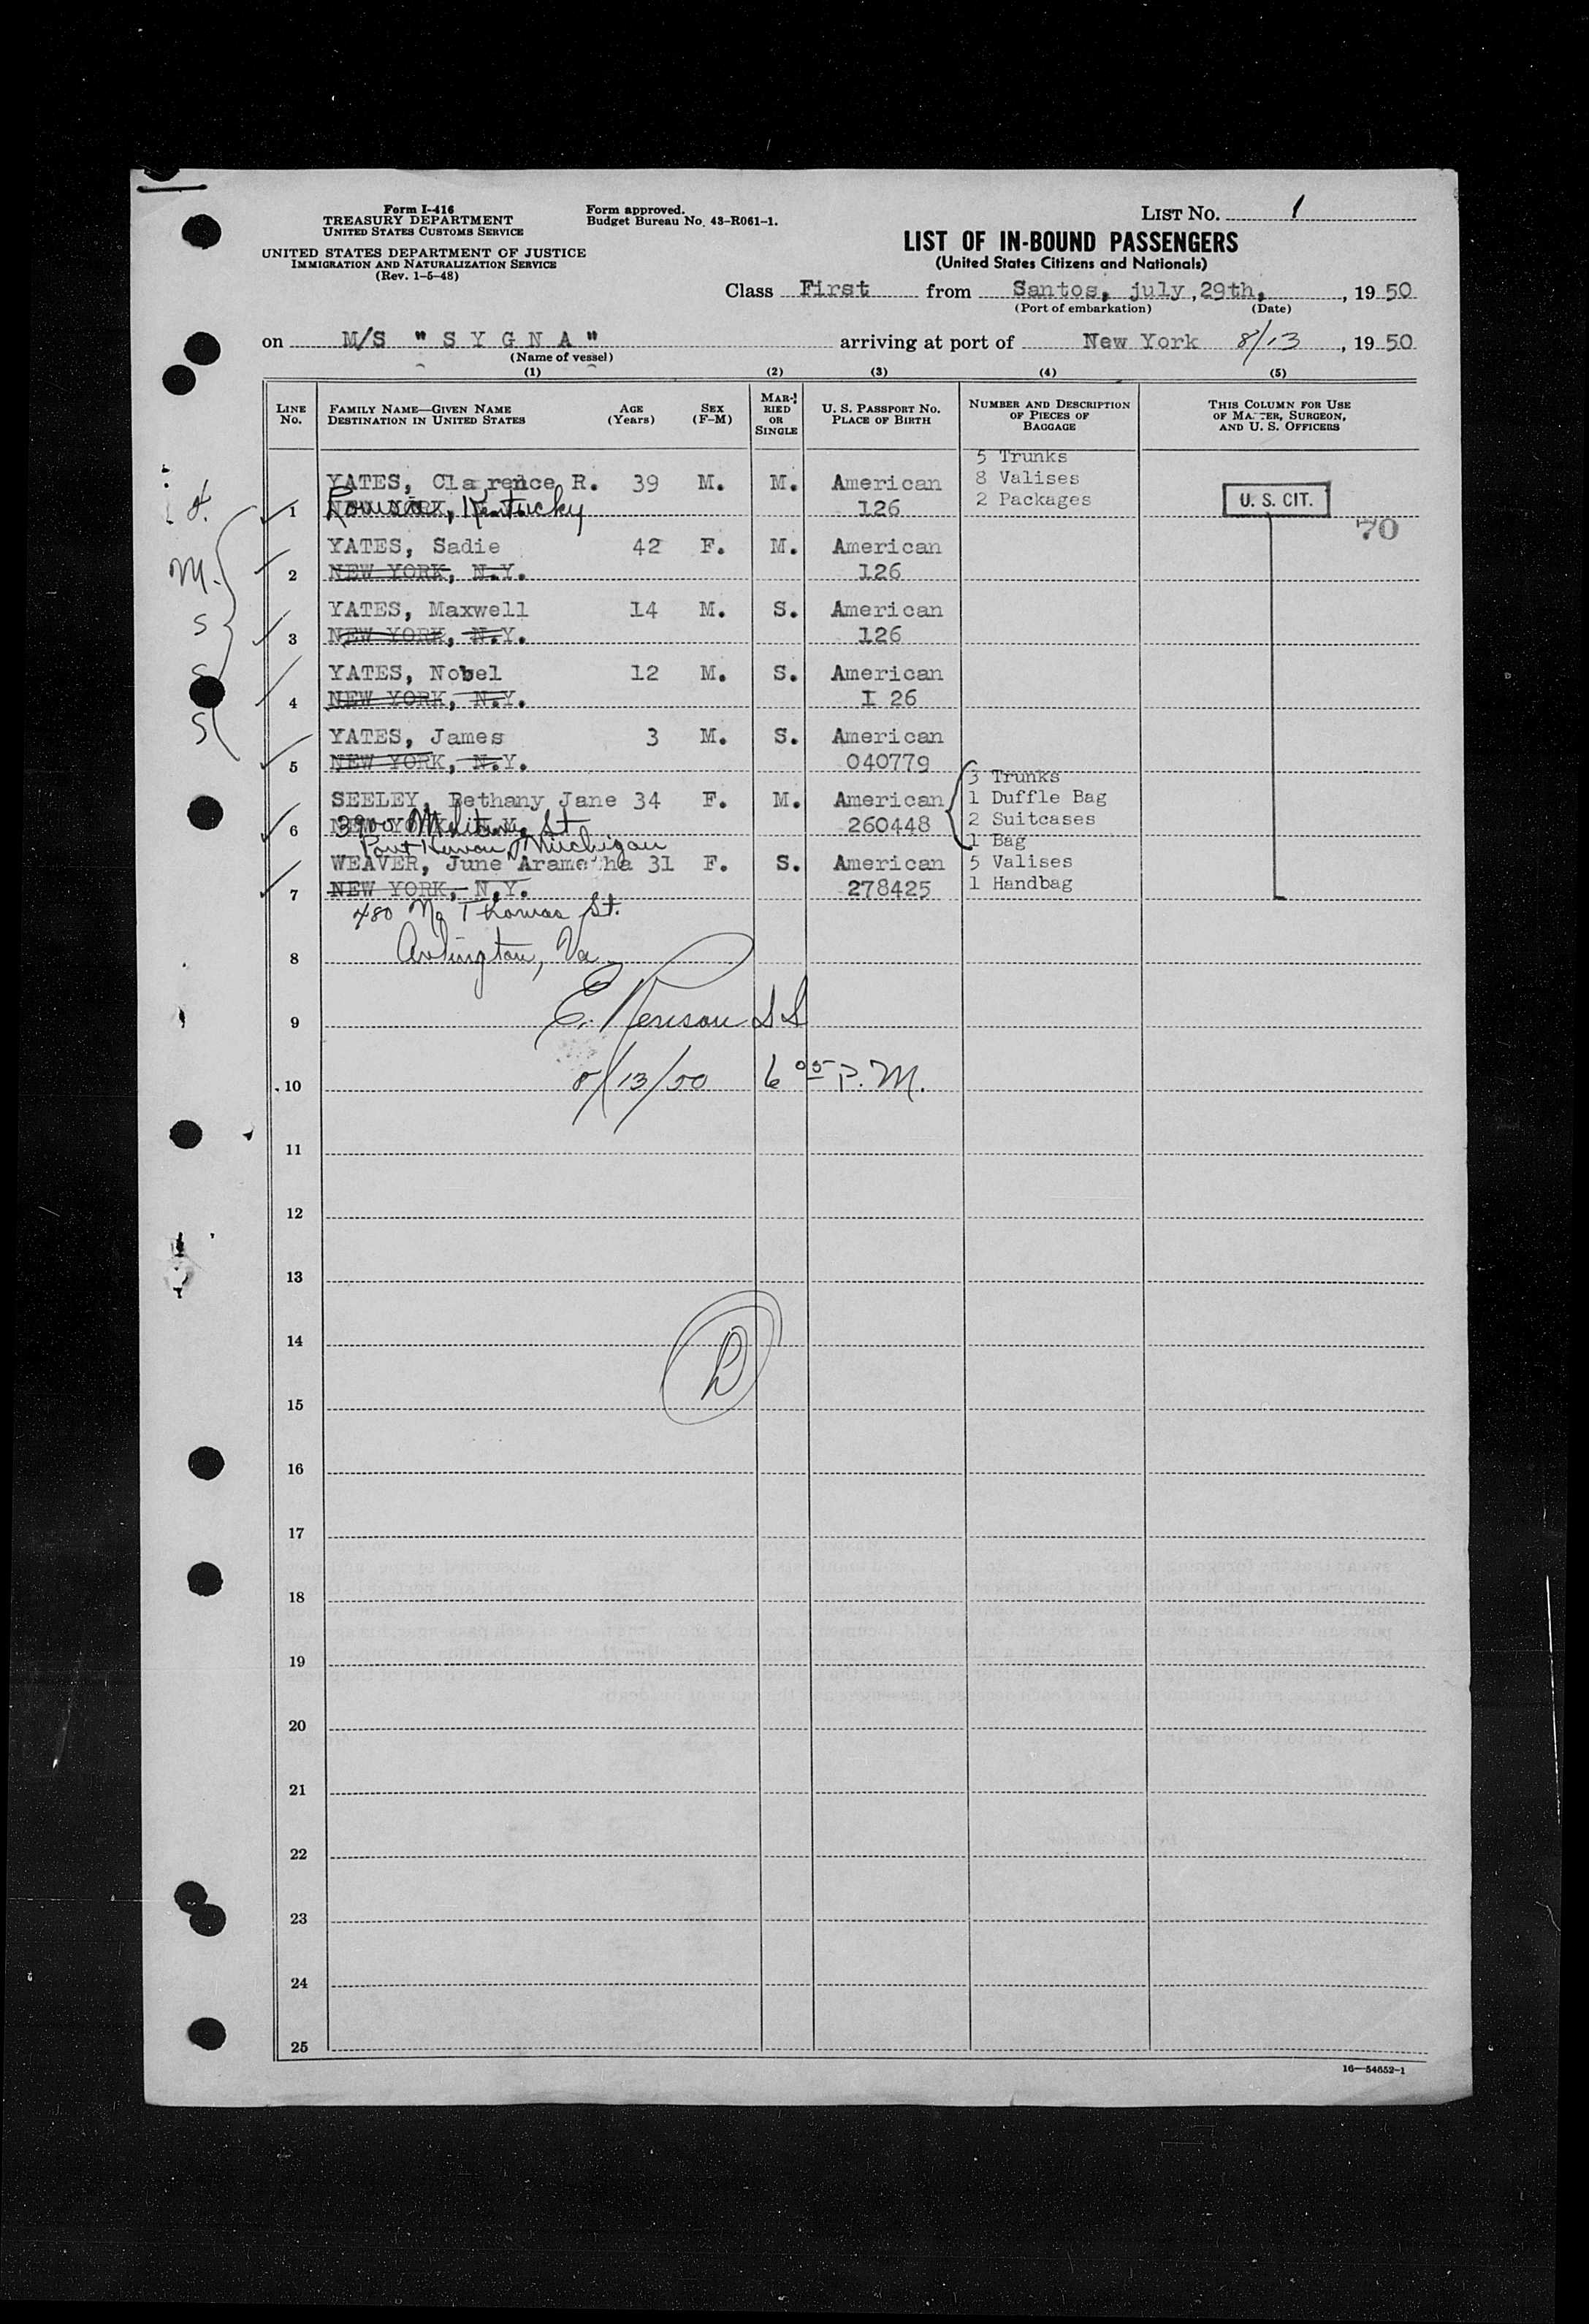 Form I-416
TREASURY DEPARTMENT
UNITED STATES CUSTOMS SERVICE
UNITED STATES DEPARTMENT OF JUSTICE
IMMIGRATION AND NATURALIZATION SERVICE
(Rev. 1-5-48)
Form approved.
Budget Bureau No. 43-R061-1.
LIST NO. 1
LIST OF IN-BOUND PASSENGERS
(United States Citizens and Nationals)
Class First from Santos, july, 29th, , 19 50
(Port of embarkation) (Date)
on M/S " S Y G N A " arriving at port of New York 8/13 , 19 50
(Name of vessel)
(1) (2) (3) (4) (5)
LINE NO. FAMILY NAME—GIVEN NAME DESTINATION IN UNITED STATES AGE (Years) SEX (F-M) MARRIED OR SINGLE U. S. PASSPORT NO. PLACE OF BIRTH NUMBER AND DESCRIPTION OF PIECES OF BAGGAGE THIS COLUMN FOR USE OF MASTER, SURGEON, AND U. S. OFFICERS
5 Trunks
YATES, Clarence R. 39 M. M. American 8 Valises
1 Kentucky 126 2 Packages U. S. CIT.
70
YATES, Sadie 42 F. M. American
M. 2 NEW YORK, N.Y. 126
YATES, Maxwell 14 M. S. American
S 3 NEW YORK, N.Y. 126
YATES, Nobel 12 M. S. American
S 4 NEW YORK, N.Y. I 26
YATES, James 3 M. S. American
S 5 NEW YORK, N.Y. 040779
3 Trunks
SEELEY, Bethany Jane 34 F. M. American 1 Duffle Bag
6 3900 Military St 260448 2 Suitcases
Port Huron, Michigan 1 Bag
WEAVER, June Arametha 31 F. S. American 5 Valises
7 NEW YORK, N.Y. 278425 1 Handbag
480 No Thomas St.
8 Arlington, Va
9 E.
10 8/13/50 6 05 P.M.
11
12
13
14
15
16
17
18
19
20
21
22
23
24
25
16—54652-1